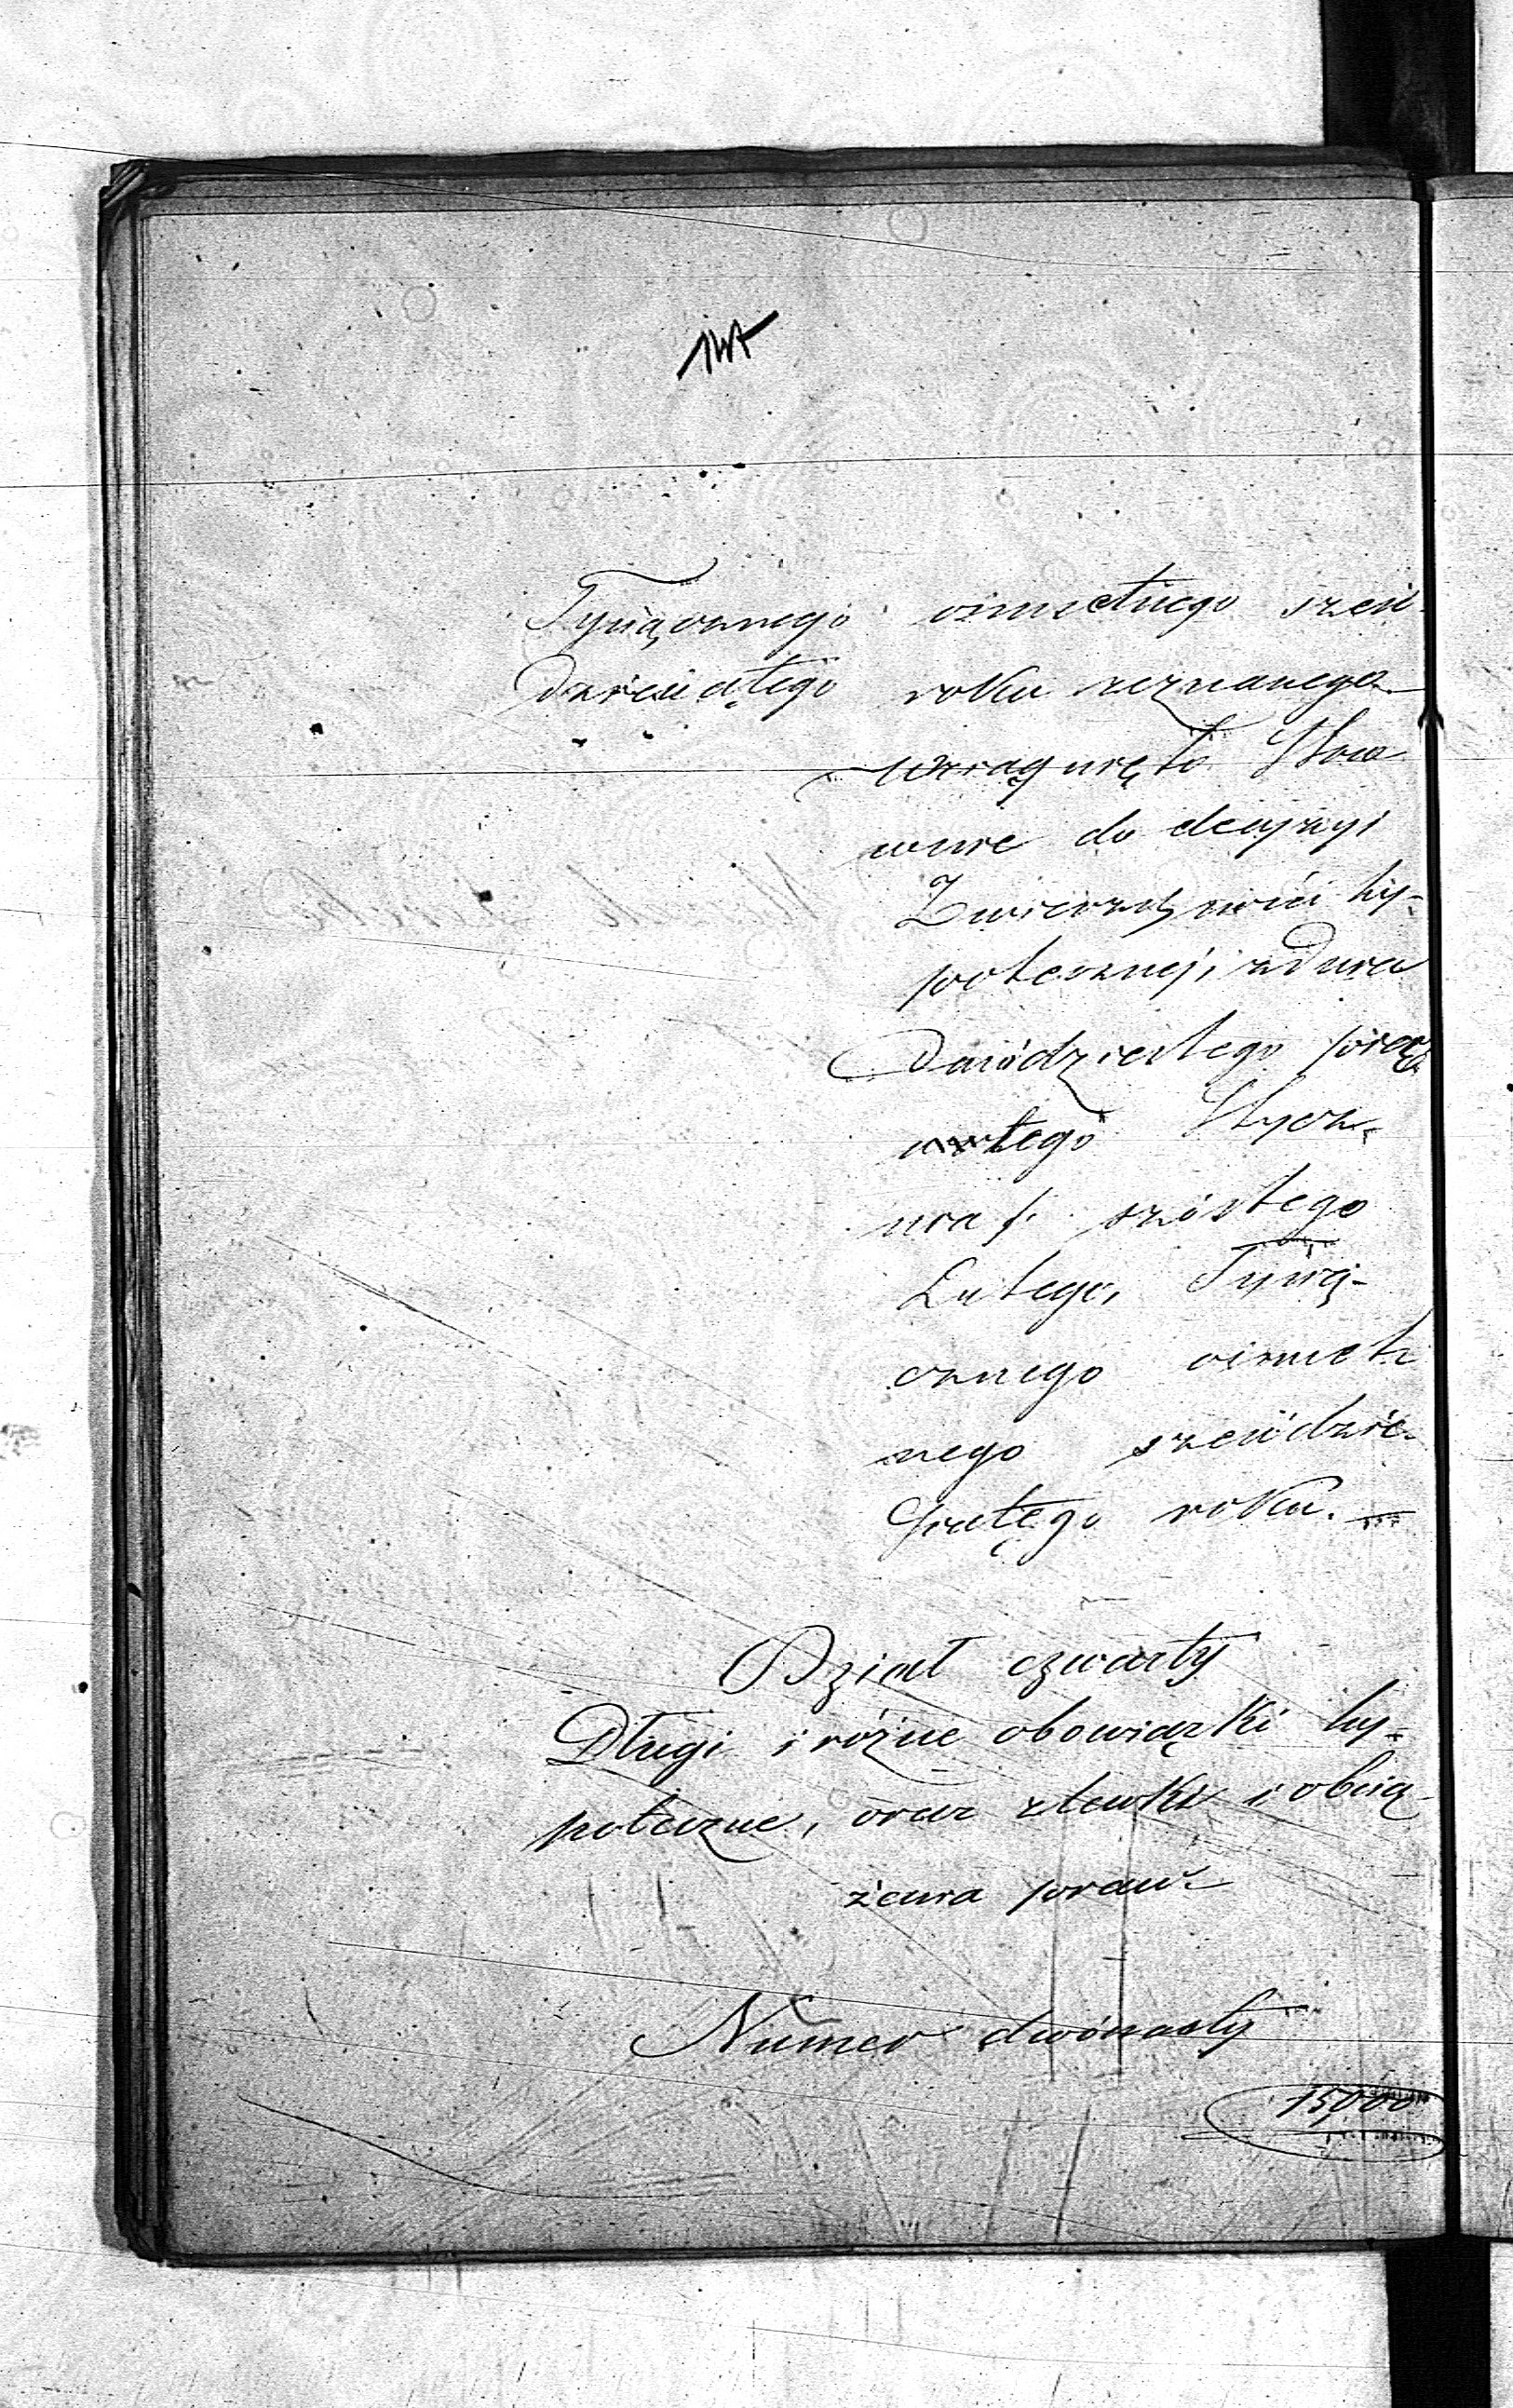 147
Tysiącznego osmsetnego sześ-
dziesiątego roku zeznanego
wciągnięto Stoso-
wnie do decyzyi
Zwierzchności hy-
potecznej, z dnia
Dwódziestego piąt
tego Stycz-
nia /. szóstego
Lutego, Tysią-
cznego ośmset
nego sześdzie-
siątego roku. —
Dział czwarty
Długi i różne obowiązki hy-
poteczne, oraz zlewki i obcią-
żenia praw.
Numer dwónasty
15,000